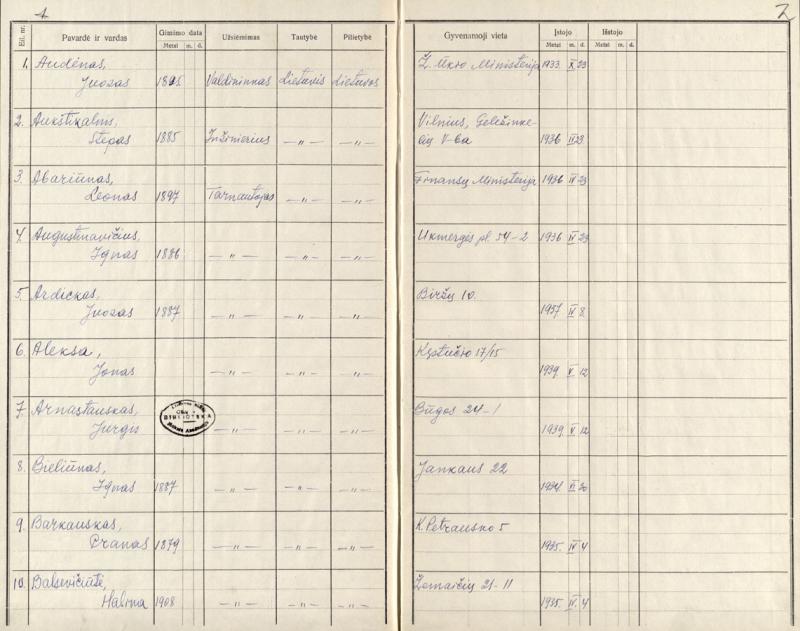 1
2
Eil. nr.
Pavardė ir vardas
Gimimo data
Metai m. d.
Užsiėmimas
Tautybė
Pilietybė
Gyvenamoji vieta
Įstojo
Metai m. d.
Išstojo
Metai m. d.
1. Audėnas, Ž. Ūkio Ministerija 1933 X 23
Juozas 1895 Valdininkas Lietuvis Lietuvos
2. Aukštikalnis, Vilnius, Geležinke-
Stepas 1885 Inžinierius —„— —„— lių V-ba 1936 IV 23
3. Abariūnas, Finansų Ministerija 1936 IV 23
Leonas 1897 Tarnautojas —„— —„—
4. Augustinavičius, Ukmergės pl. 54-2 1936 IV 23
Ignas 1886 —„— —„— —„—
5. Ardickas, Biržų 10.
Juozas 1887 —„— —„— —„— 1937 IV 8
6. Aleksa, Kęstučio 17/15
Jonas —„— —„— —„— 1939 V 12
7. Arnastauskas, Būgos 24-1
Jurgis —„— —„— —„— 1939 V 12
BIBLIOTEKA
8. Bieliūnas, Jankaus 22
Ignas 1887 —„— —„— —„— 1934
9. Barkauskas, K. Petrausko 5
Pranas 1879 —„— —„— —„— 1935 IV 4
10. Balsevičiūtė, Žemaičių 21-11
Halina 1908 —„— —„— —„— 1935 IV 4